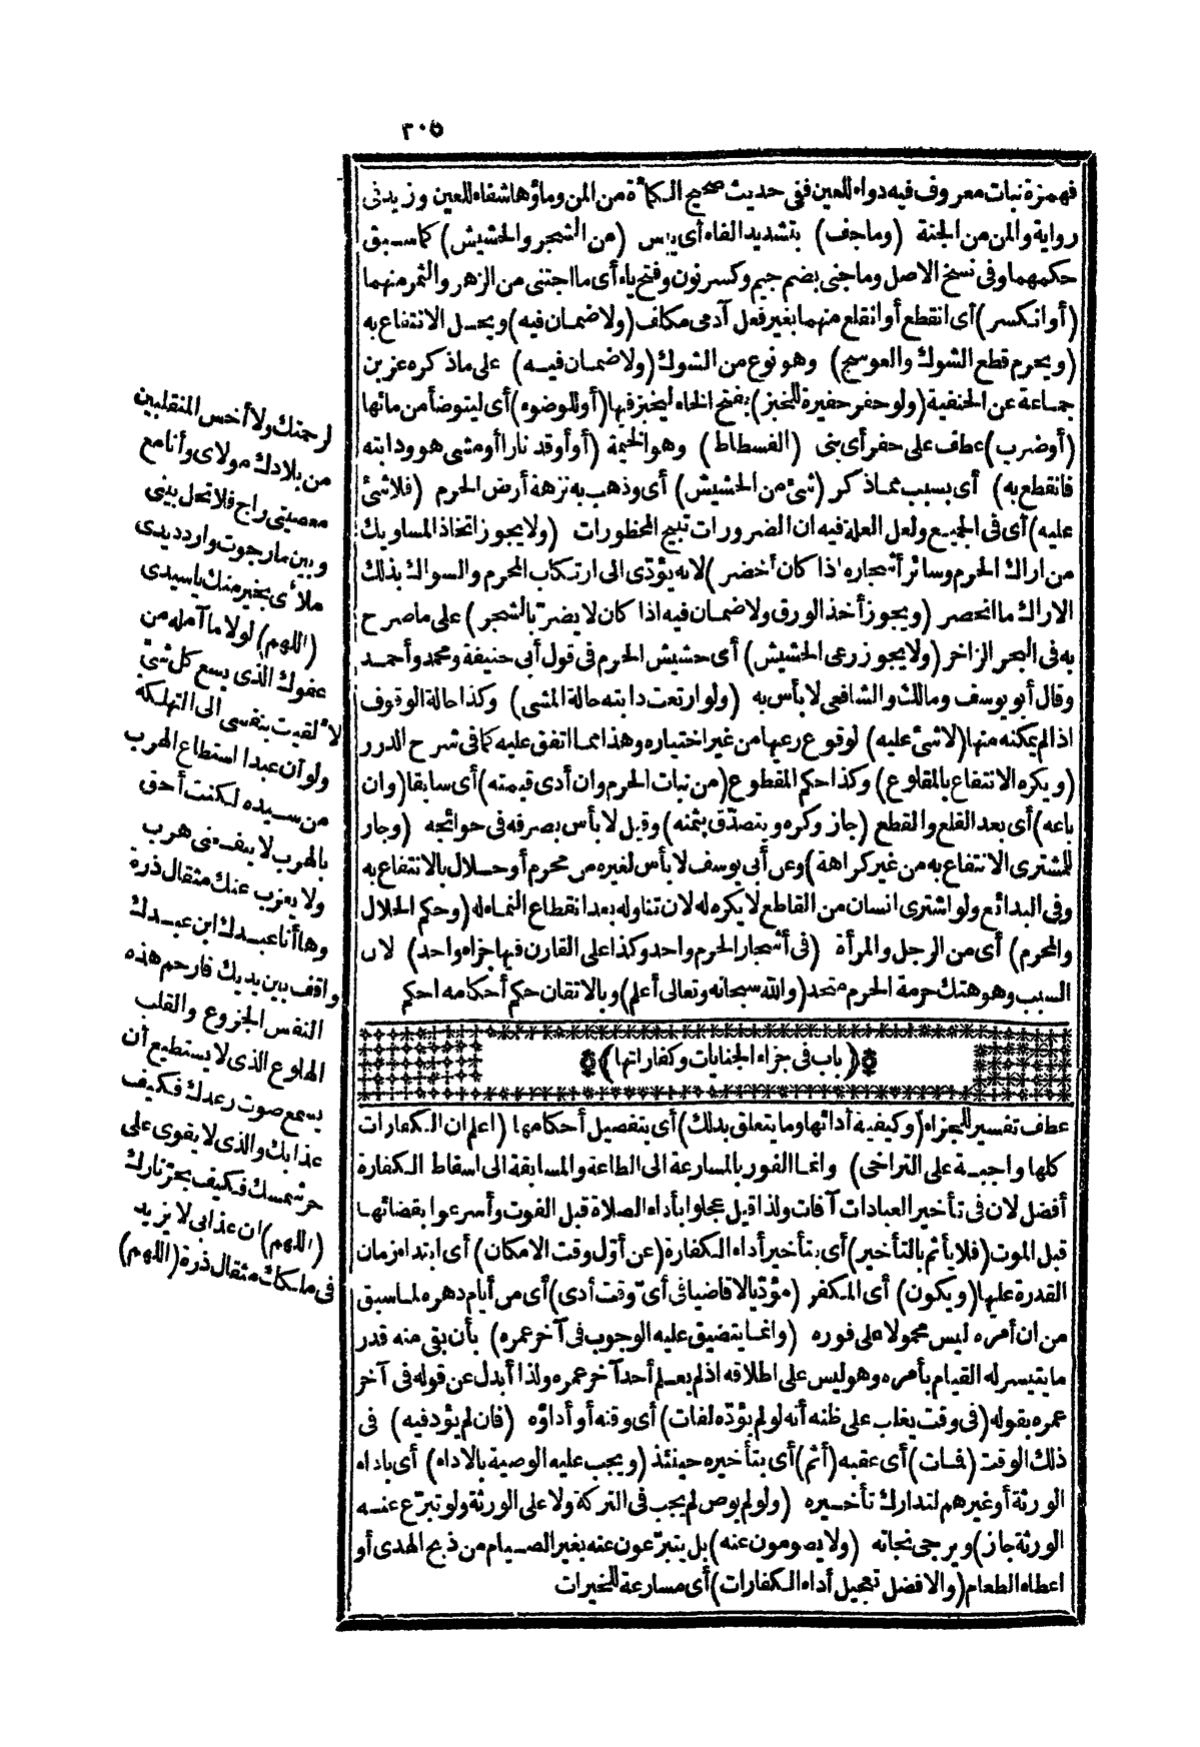 ٣٠٥
فهمزة نبات معروف فيه دواء للعين ففى حديث صحيح الكمأة من المن وماؤها شفاء للعين وزيد فى
رواية والمن من الجنة (وما جف) بتشديد الفاء أى يبس (من الشجر والحشيش) كما سبق
حكمهما وفى نسخ الاصل وما جنى بضم جيم وكسر نون وفتح ياء أى ما اجتنى من الزهر والثمر منهما
(أو انكسر) أى انقطع أو انقلع منهما بغير فعل آدمى مكلف (ولا ضمان فيه) ويحل الانتفاع به
(ويحرم قطع الشوك والعوسج) وهو نوع من الشوك (ولا ضمان فيه) على ماذكره عز بن
جماعة عن الحنفية (ولو حفر حفيرة للخبز) بفتح الخاء ليخبز فيها (أو للوضوء) أى ليتوضأ من مائها
(أو ضرب) عطف على حفر أى بنى (الفسطاط) وهو الخيمة (أو أوقد نارا أو مشى هو ودابته
فانقطع به) أى بسبب مماذكر (شئ من الحشيش) أى وذهب به نزهة أرض الحرم (فلاشئ
عليه) أى فى الجميع ولعل العلة فيه ان الضرورات تبيح المحظورات (ولا يجوز اتخاذ المساويك
من اراك الحرم وسائر أشجاره اذا كان أخضر) لانه يؤدّى الى ارتكاب المحرم والسواك بذلك
الاراك ما انحصر (ويجوز أخذ الورق ولا ضمان فيه اذا كان لا يضرّ بالشجر) على ماصرح
به فى البحر الزاخر (ولا يجوز رعى الحشيش) أى حشيش الحرم فى قول أبى حنيفة ومحمد وأحمد
وقال أبو يوسف ومالك والشافعى لا بأس به (ولو ارتعت دابته حالة المشى) وكذا حالة الوقوف
اذا لم يمكنه منها (لاشئ عليه) لوقوع رعيها من غير اختياره وهذا مما اتفق عليه كما فى شرح الدرر
(ويكره الانتفاع بالمقلوع) وكذا حكم المقطوع (من نبات الحرم وان أدى قيمته) أى سابقا (وان
باعه) أى بعد القلع والقطع (جاز وكره ويتصدّق بثمنه) وقيل لا بأس بصرفه فى حوائجه (وجاز
للمشترى الانتفاع به من غير كراهة) وعن أبى يوسف لا بأس لغيره من محرم أو حلال بالانتفاع به
وفى البدائع ولو اشترى انسان من القاطع لا يكره له لان تناوله بعد انقطاع النماءله (وحكم الحلال
والمحرم) أى من الرجل والمرأة (فى أشجار الحرم واحد وكذا على القارن فيها جزاء واحد) لان
السبب وهو هتك حرمة الحرم متحد (والله سبحانه وتعالى أعلم) وبالاتقان حكم أحكامه احكم
(باب فى جزاء الجنايات وكفاراتها)
عطف تفسير للجزاء (وكيفية أدائها وما يتعلق بذلك) أى بتفصيل أحكامها (اعلم ان الكفارات
كلها واجبة على التراخى) وانما الفور بالمسارعة الى الطاعة والمسابقة الى اسقاط الكفارة
أفضل لان فى تأخير العبادات آفات ولذا قيل عجلوا بأداء الصلاة قبل الفوت وأسرعوا بقضائها
قبل الموت (فلا يأثم بالتأخير) أى بتأخير أداء الكفارة (عن أوّل وقت الامكان) أى ابتداء زمان
القدرة عليها (ويكون) أى المكفر (مؤدّيا لا قاضيا فى أىّ وقت أدى) أى من أيام دهره لما سبق
من ان أمره ليس محمولا على فوره (وانما يتضيق عليه الوجوب فى آخر عمره) بأن بقى منه قدر
ما يتيسر له القيام بأمره وهو ليس على اطلاقه اذ لم يعلم أحد آخر عمره ولذا أبدل عن قوله فى آخر
عمره بقوله (فى وقت يغلب على ظنه أنه لو لم يؤدّه لفات) أى وقته أو أداؤه (فان لم يؤد فيه) فى
ذلك الوقت (فمات) أى عقبه (أثم) أى بتأخيره حينئذ (ويجب عليه الوصية بالاداء) أى باداء
الورثة أو غيرهم لتدارك تأخيره (ولو لم يوص لم يجب فى التركة ولا على الورثة ولو تبرّع عنه
الورثة جاز) ويرجى نجاته (ولا يصومون عنه) بل يتبرّعون عنه بغير الصيام من ذبح الهدى أو
اعطاء الطعام (والافضل تعجيل أداء الكفارات) أى مسارعة للخيرات
لرحمتك ولا أخس المنقلبين
من بلادك مولاى وأنا مع
معصيتى راج فلا تحل بينى
وبين مارجوت واردد يدى
ملأى بخير منك ياسيدى
(اللهم) لولا ما آمله من
عفوك الذى يسع كل شئ
لالقيت بنفسى الى التهلكة
ولو أن عبدا استطاع الهرب
من سيده لكنت أحق
بالهرب لا ينفعنى هرب
ولا يعزب عنك مثقال ذرة
وها أنا عبدك ابن عبدك
واقف بين يديك فارحم هذه
النفس الجزوع والقلب
الهلوع الذى لا يستطيع أن
يسمع صوت رعدك فكيف
عذابك والذى لا يقوى على
حرّ شمسك فكيف بحرّ نارك
(اللهم) ان عذابى لا يزيد
فى ملكك مثقال ذرة (اللهم)